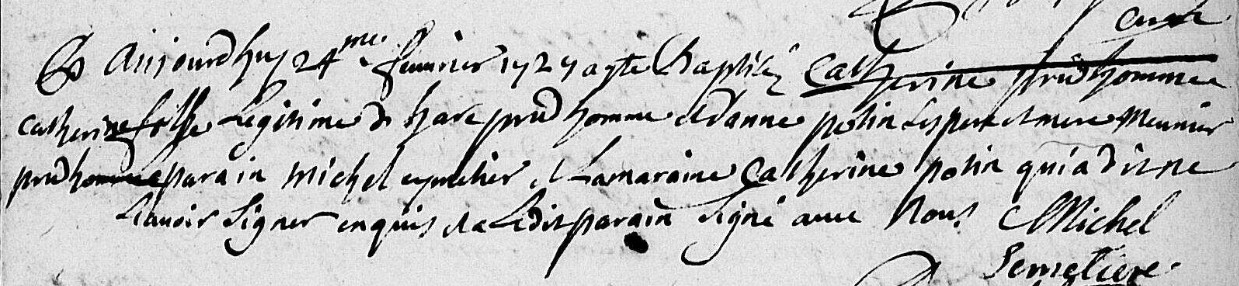 Curé
Aujourdhuy 24me feuurier 1727 a este Baptisé Catherine prudhomme
Catherine fille Legitime de prudhomme et danne potin Les pere et mere Meunier
prudhomme parain Michel et La maraine Catherine potin qui a dit ne
scauoir signer enquis et a Ledit parain signé auec Nous Michel
Semetiere.